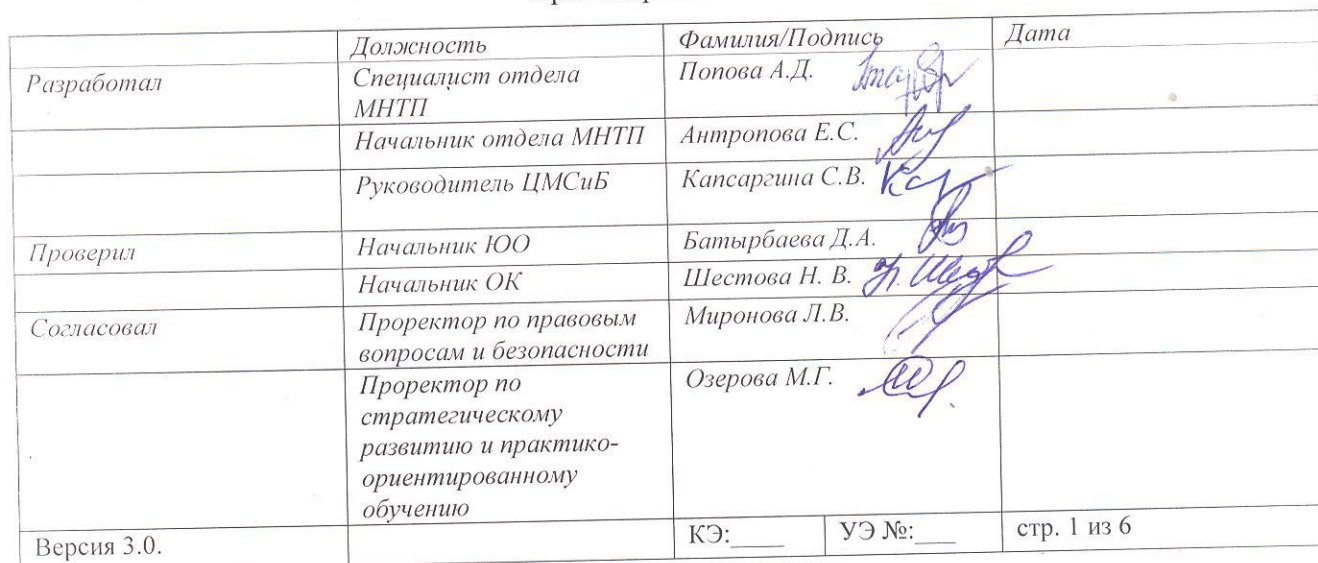 Должность Фамилия/Подпись Дата
Разработал Специалист отдела Попова А.Д.
МНТП
Начальник отдела МНТП Антропова Е.С.
Руководитель ЦМСиБ Капсаргина С.В.
Проверил Начальник ЮО Батырбаева Д.А.
Начальник ОК Шестова Н. В.
Согласовал Проректор по правовым Миронова Л.В.
вопросам и безопасности
Проректор по Озерова М.Г.
стратегическому
развитию и практико-
ориентированному
обучению
Версия 3.0. КЭ:____ УЭ №:___ стр. 1 из 6